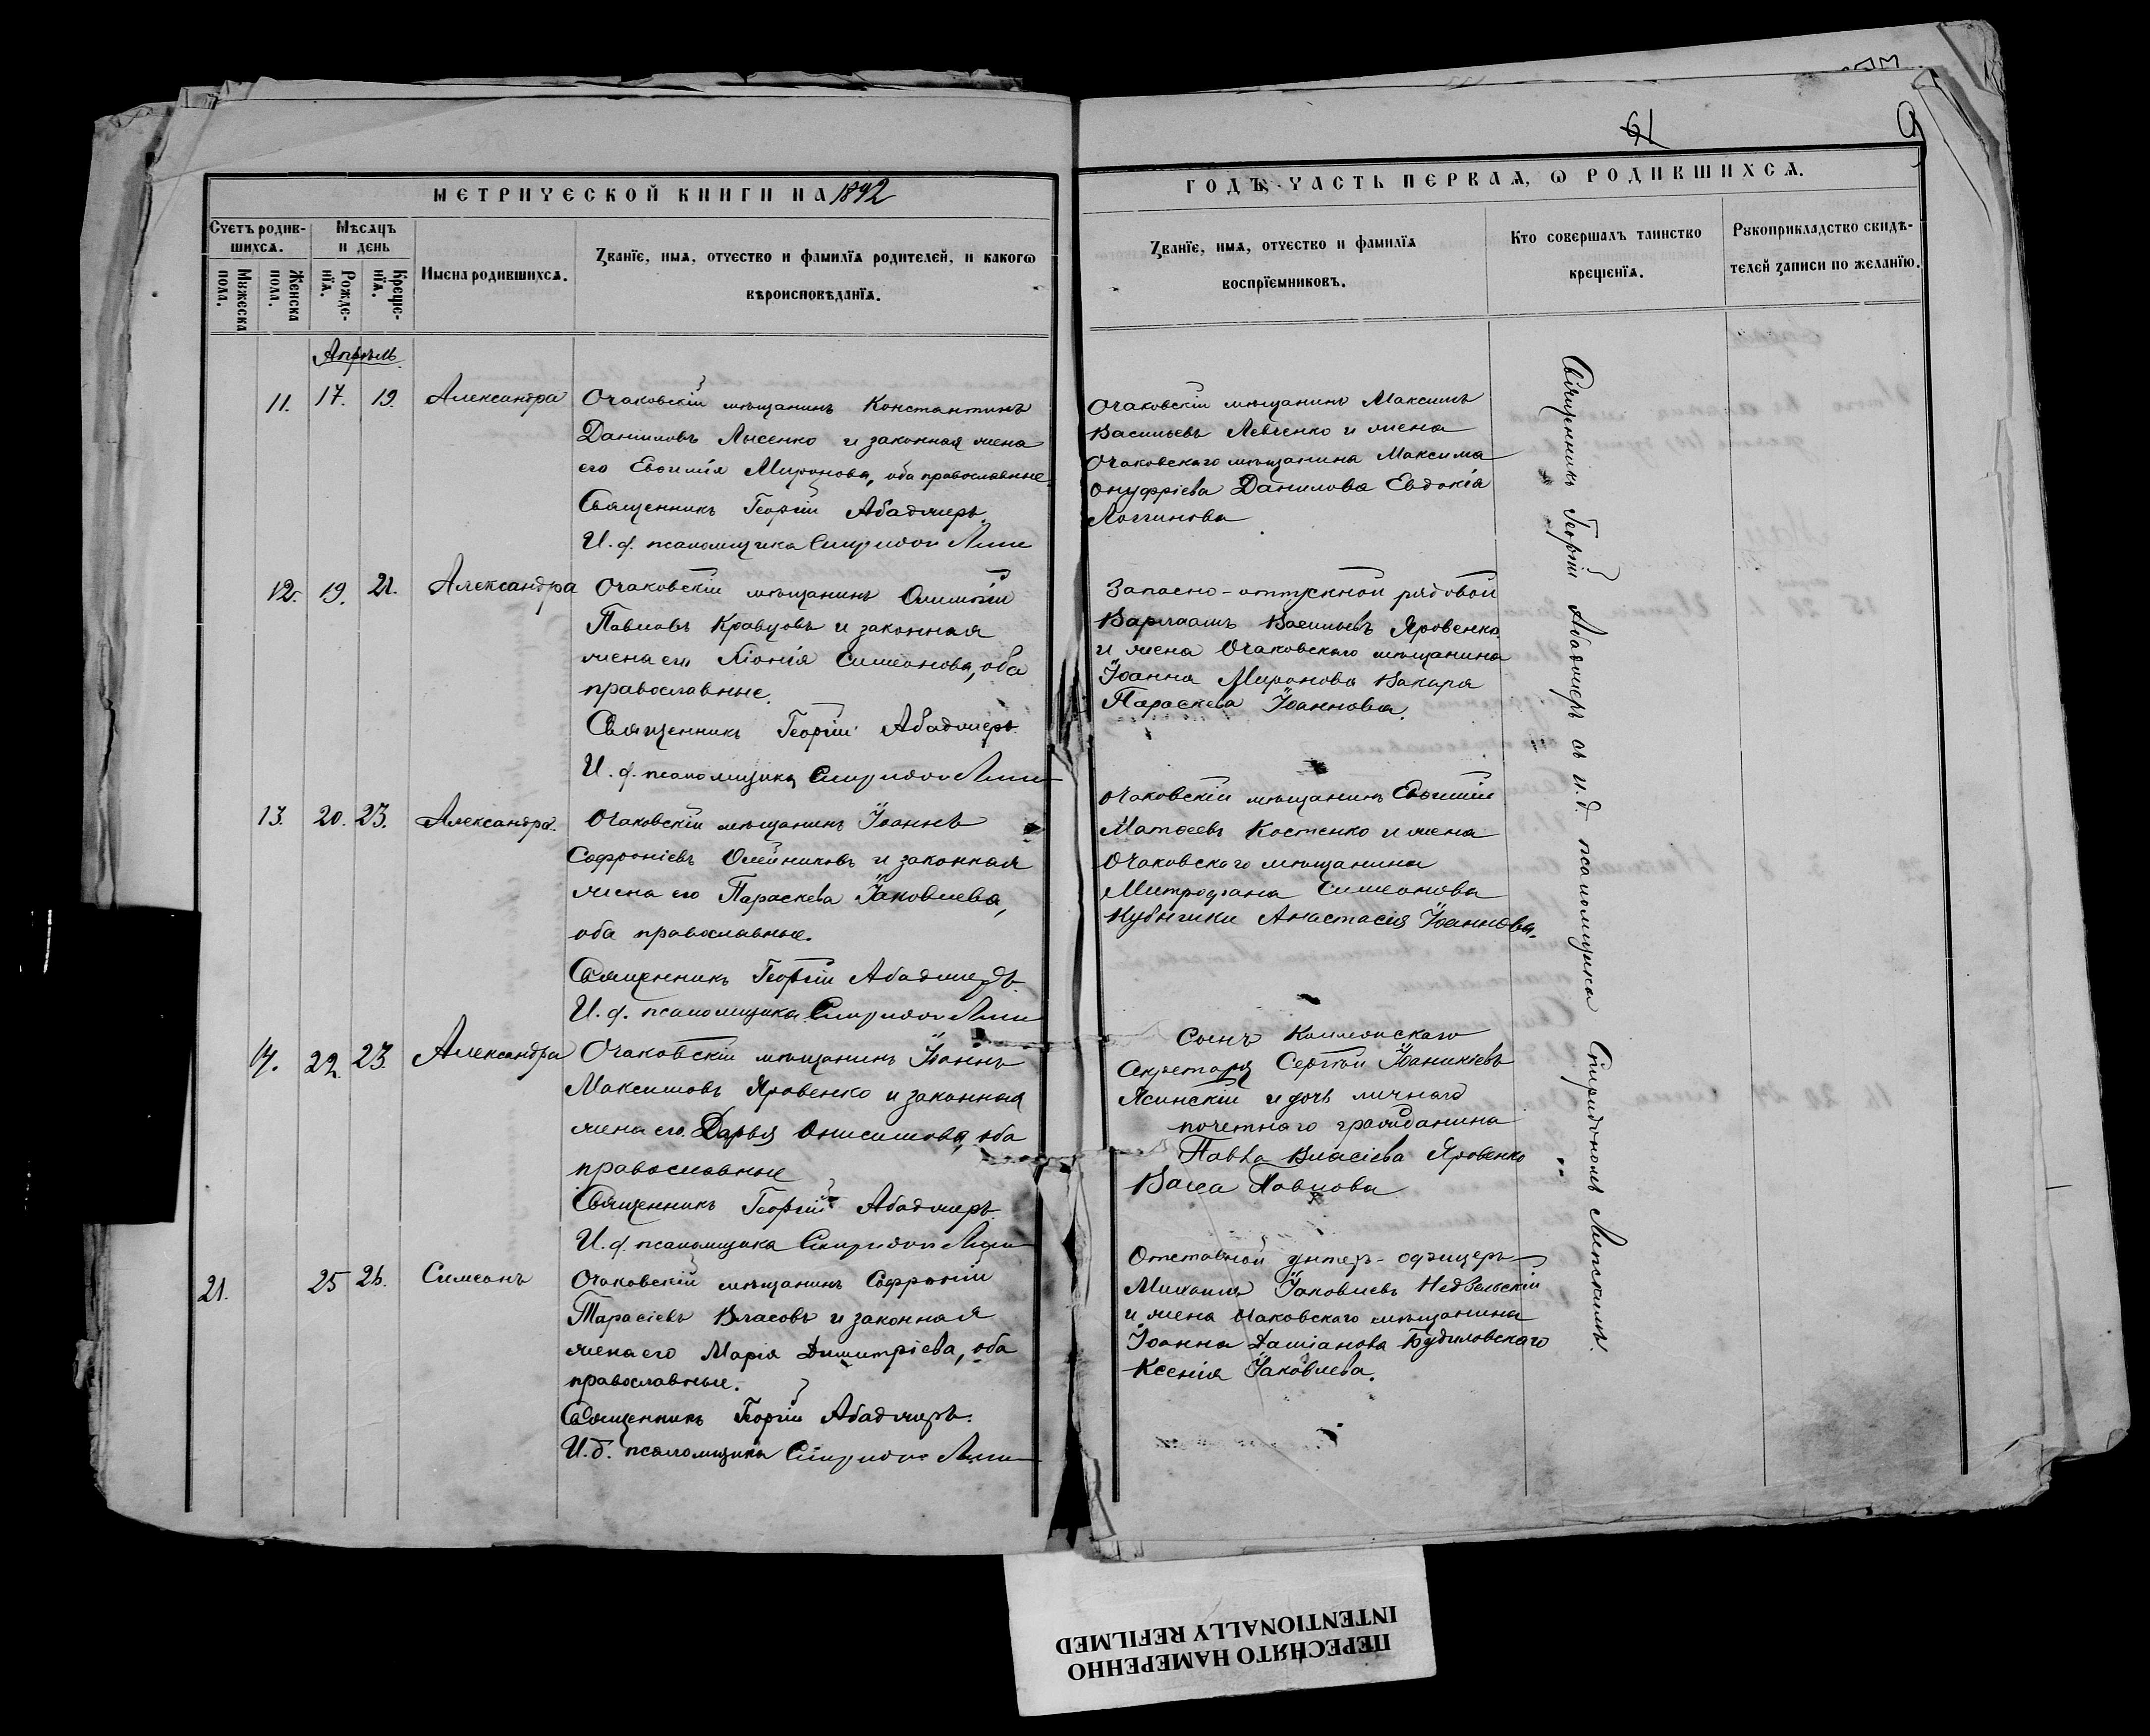 61
9
МЕТРИЧЕСКОЙ КНИГИ НА 1892
ГОДЪ, ЧАСТЬ ПЕРВАЯ, Ѡ РОДИВШИХСЯ.
Счетъ родив-
шихся.
Мужеска
пола.
Женска
пола.
Мѣсяцъ
и день
Рожде-
нїя.
Креще-
нїя.
Имена родившихся.
Званїе, имя, отчество и фамилїя родителей, и какогѡ
вѣроисповѣданїя.
Званїе, имя, отчество и фамилїя
воспрїемниковъ.
Кто совершалъ таинство
крещенїя.
Рукоприкладство свидѣ-
телей записи по желанїю.
Апрѣль
11. 17. 19. Александра
Очаковскій мѣщанинъ Константинъ
Даниловъ Лысенко и законная жена
его Евѳимія Миронова, оба православные.
Священникъ Георгій Абаджеръ.
И. д. псаломщика Спиридон
Очаковскій мѣщанинъ Максимъ
Васильевъ Левченко и жена
Очаковскаго мѣщанина Максима
Онуфріева Данилова Евдокія
Логгинова
12. 19. 21. Александра
Очаковскій мѣщанинъ Олимпій
Павловъ Кравцовъ и законная
жена его Хіонія Симеонова, оба
православные.
Священникъ Георгій Абаджеръ.
И. д. псаломщика Спиридон
Запасно-отпускной рядовой
Варлаамъ Васильевъ Яровенко
и жена Очаковскаго мѣщанина
Іоанна Миронова Вакаря
Параскева Іоаннова.
13. 20. 23. Александра.
Очаковскій мѣщанинъ Іоаннъ
Софроніевъ Олейниковъ и законная
жена его Параскева Іаковлева,
оба православные.
Священникъ Георгій Абаджеръ.
И. д. псаломщика Спиридон
Очаковскій мѣщанинъ Евѳимій
Матѳеевъ Костенко и жена
Очаковскаго мѣщанина
Митрофана Симеонова
Анастасія Іоаннова.
14. 22. 23. Александра
Очаковскій мѣщанинъ Іоаннъ
Максимовъ Яровенко и законная
жена его Дарья Онисимова, оба
православные
Священникъ Георгій Абаджеръ.
И. д. псаломщика Спиридон
Сынъ
Секретаря Сергѣй Іоанникіевъ
Ясинскій и дочь личнаго
почетнаго гражданина
Павла Власіева Яровенко
Васса Павлова
21. 25 26. Симеонъ
Очаковскій мѣщанинъ Софроній
Тарасіевъ Власовъ и законная
жена его Марія Димитріева, оба
православные.
Священникъ Георгій Абаджеръ.
И. д. псаломщика Спиридон
Отставной унтеръ-офицеръ
Михаилъ Іаковлевъ Недзельскій
и жена Очаковскаго мѣщанина
Іоанна Даміанова Будиловскаго
Ксенія Іаковлева.
Священникъ Георгій Абаджеръ съ и. д. псаломщика Спиридономъ Липскимъ.
ПЕРЕСНЯТО НАМЕРЕННО
INTENTIONALLY REFILMED